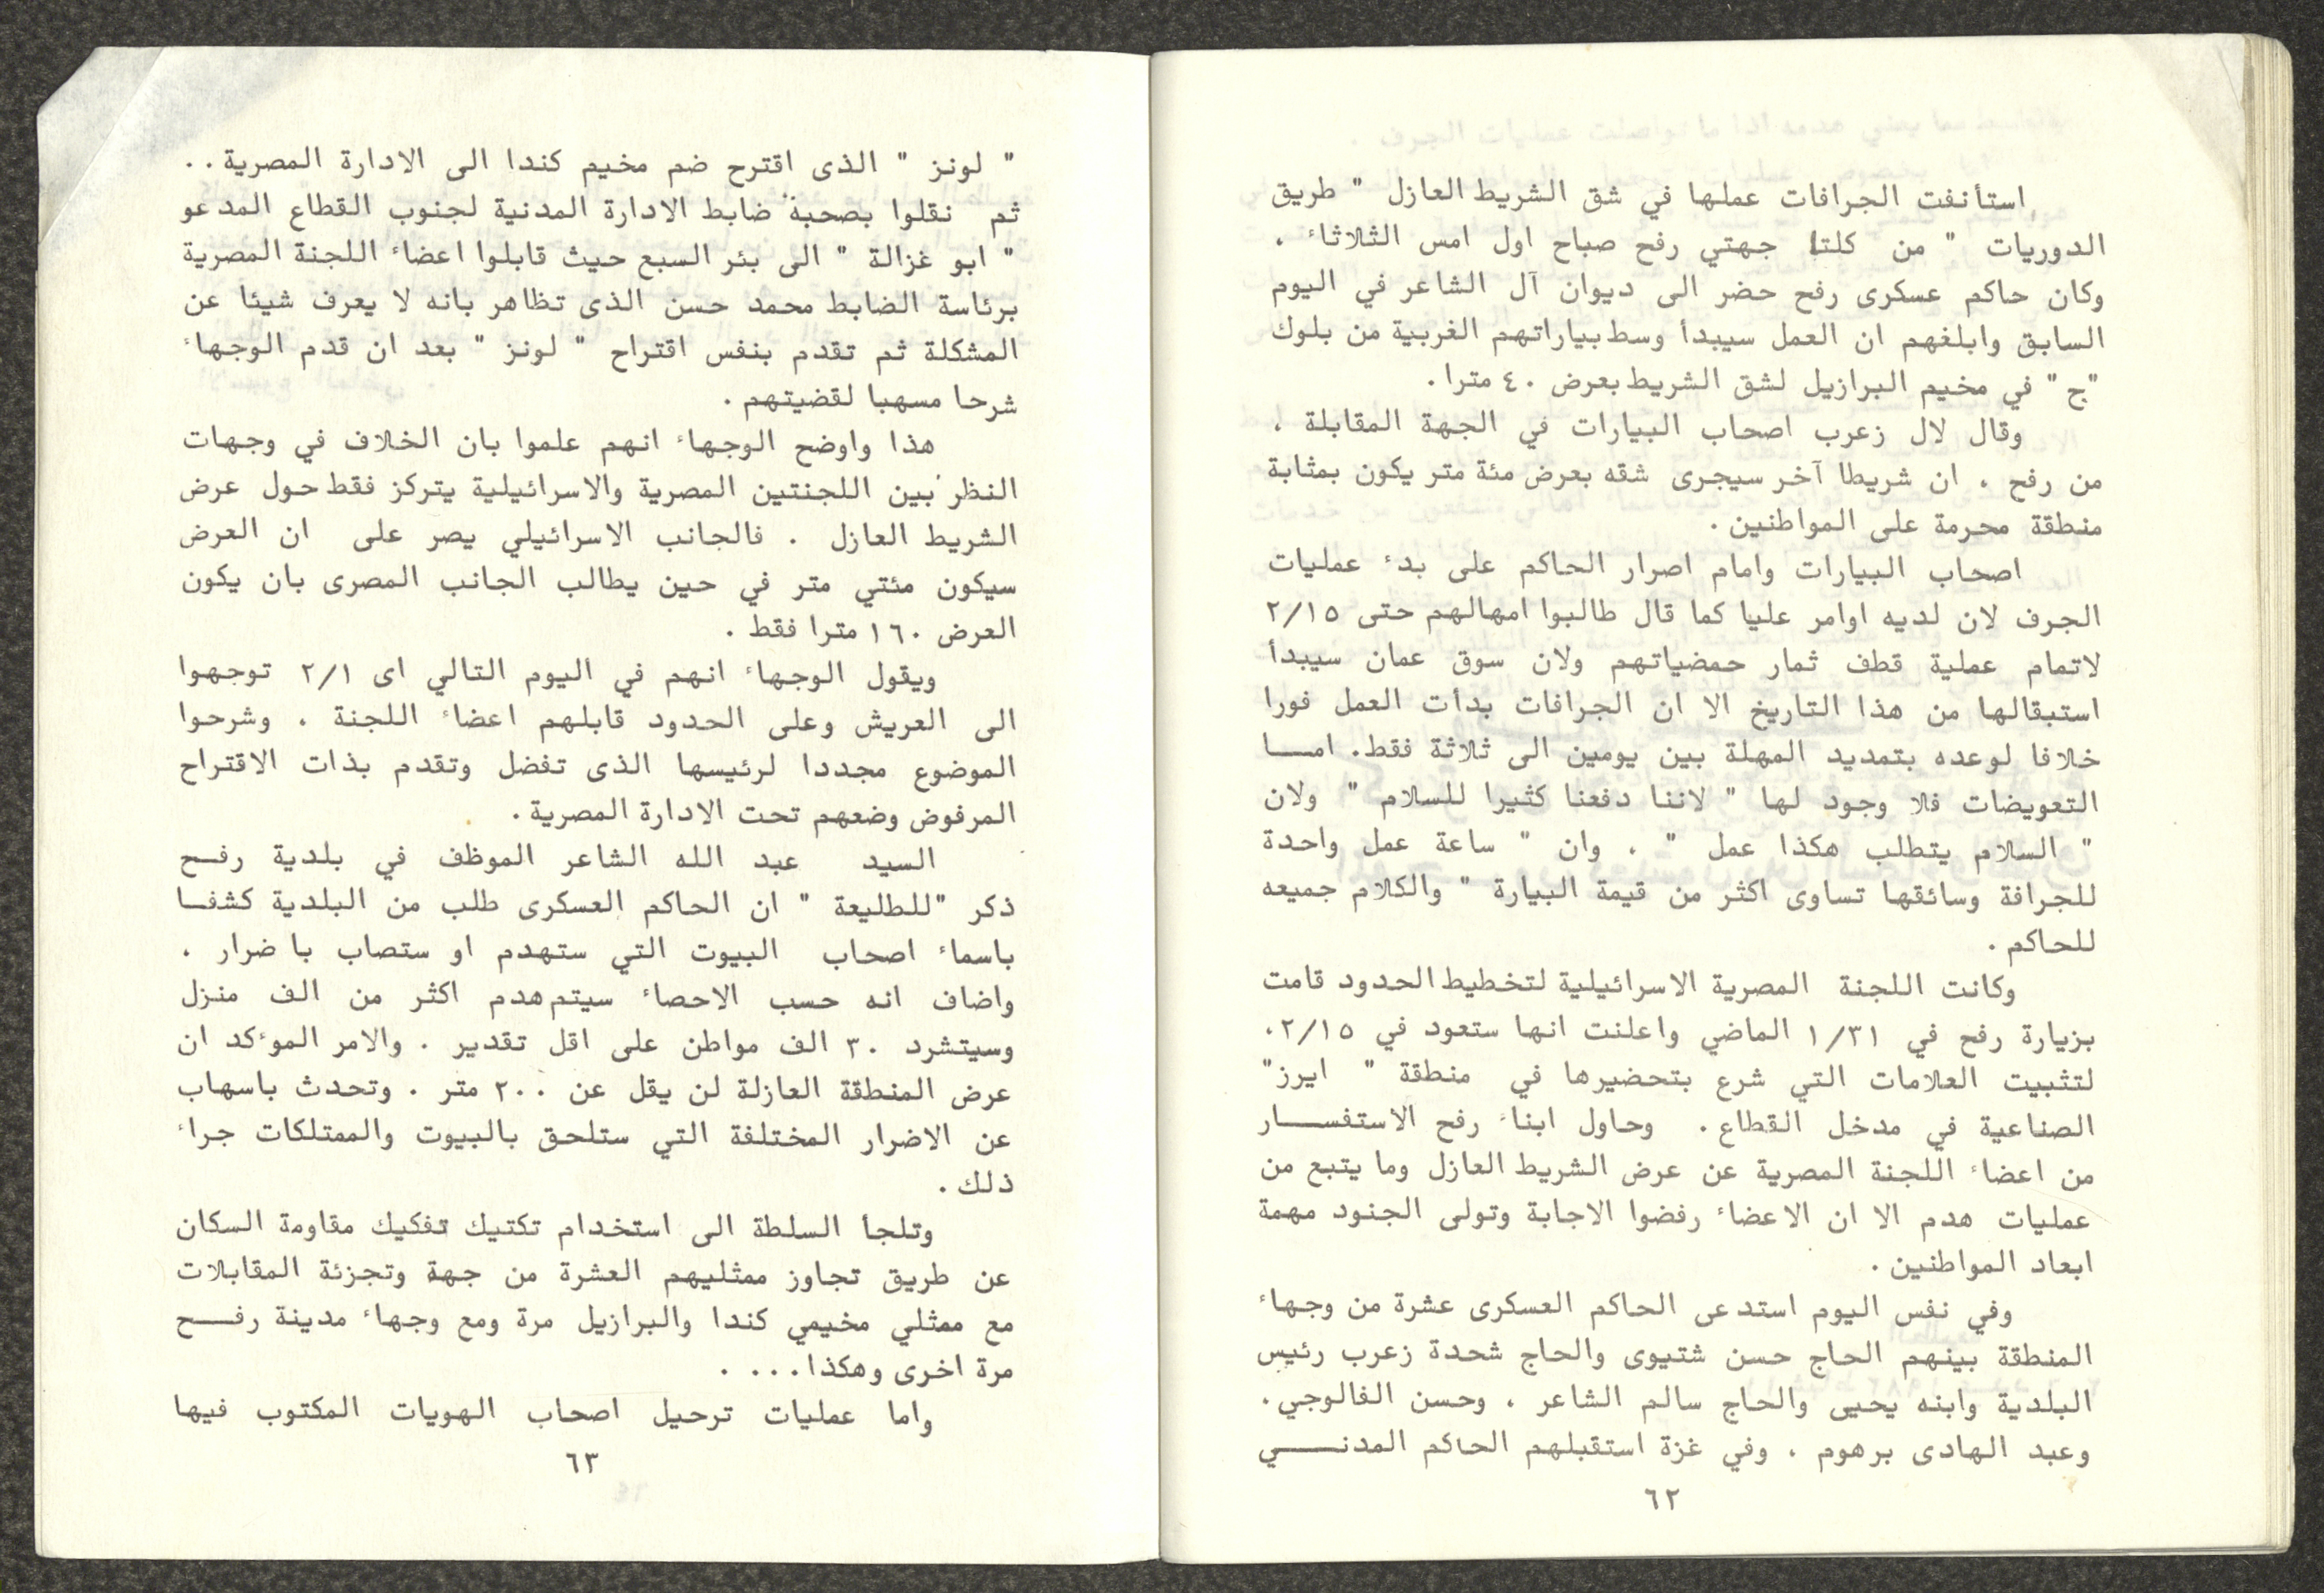 استأنفت الجرافات عملها في شق الشريط العازل " طريق
الدوريات " من كلتا جهتي رفح صباح اول امس الثلاثاء ،
وكان حاكم عسكرى رفح حضر الى ديوان آل الشاعر في اليوم
السابق وابلغهم ان العمل سيبدأ وسط بياراتهم الغربية من بلوك
"ج" في مخيم البرازيل لشق الشريط بعرض ٤٠ مترا.
وقال لال زعرب اصحاب البيارات في الجهة المقابلة ،
من رفح ، ان شريطا آخر سيجرى شقه بعرض مئة متر يكون بمثابة
منطقة محرمة على المواطنين .
اصحاب البيارات وامام اصرار الحاكم على بدء عمليات
الجرف لان لديه اوامر عليا كما قال طالبوا امهالهم حتى ٢/١٥
لاتمام عملية قطف ثمار حمضياتهم ولان سوق عمان سيبدأ
استبقالها من هذا التاريخ الا ان الجرافات بدأت العمل فورا
خلافا لوعده بتمديد المهلة بين يومين الى ثلاثة فقط. امـــا
التعويضات فلا وجود لها " لاننا دفعنا كثيرا للسلام " ولان
" السلام يتطلب هكذا عمل " ، وان " ساعة عمل واحدة
للجرافة وسائقها تساوى اكثر من قيمة البيارة " والكلام جميعه
للحاكم .
وكانت اللجنة المصرية الاسرائيلية لتخطيط الحدود قامت
بزيارة رفح في ١/٣١ الماضي واعلنت انها ستعود في ٢/١٥،
لتثبيت العلامات التي شرع بتحضيرها في منطقة " ايرز"
الصناعية في مدخل القطاع . وحاول ابناء رفح الاستفســـار
من اعضاء اللجنة المصرية عن عرض الشريط العازل وما يتبع من
عمليات هدم الا ان الاعضاء رفضوا الاجابة وتولى الجنود مهمة
ابعاد المواطنين .
وفي نفس اليوم استدعى الحاكم العسكرى عشرة من وجهاء
المنطقة بينهم الحاج حسن شتيوى والحاج شحدة زعرب رئيس
البلدية وابنه يحيى والحاج سالم الشاعر ، وحسن الفالوجي.
وعبد الهادى برهوم . وفي غزة استقبلهم الحاكم المدنـــي
٦٢
" لونز " الذى اقترح ضم مخيم كندا الى الادارة المصرية..
ثم نقلوا بصحبة ضابط الادارة المدنية لجنوب القطاع المدعو
" ابو غزالة " الى بئر السبع حيث قابلوا اعضاء اللجنة المصرية
برئاسة الضابط محمد حسن الذى تظاهر بانه لا يعرف شيئا عن
المشكلة ثم تقدم بنفس اقتراح " لونز " بعد ان قدم الوجهاء
شرحا مسهبا لقضيتهم .
هذا واوضح الوجهاء انهم علموا بان الخلاف في وجهات
النظر بين اللجنتين المصرية والاسرائيلية يتركز فقط حول عرض
الشريط العازل . فالجانب الاسرائيلي يصر على ان العرض
سيكون مئتي متر في حين يطالب الجانب المصرى بان يكون
العرض ١٦٠ مترا فقط .
ويقول الوجهاء انهم في اليوم التالي اى ٢/١ توجهوا
الى العريش وعلى الحدود قابلهم اعضاء اللجنة . وشرحوا
الموضوع مجددا لرئيسها الذى تفضل وتقدم بذات الاقتراح
المرفوض وضعهم تحت الادارة المصرية .
السيد عبد الله الشاعر الموظف في بلدية رفـح
ذكر "للطليعة " ان الحاكم العسكرى طلب من البلدية كشفـا
باسماء اصحاب البيوت التي ستهدم او ستصاب با ضرار .
واضاف انه حسب الاحصاء سيتم هدم اكثر من الف منزل
وسيتشرد ٣٠ الف مواطن على اقل تقدير . والامر الموءكد ان
عرض المنطقة العازلة لن يقل عن ٢٠٠ متر . وتحدث باسهاب
عن الاضرار المختلفة التي ستلحق بالبيوت والممتلكات جراء
ذلك .
وتلجأ السلطة الى استخدام تكتيك تفكيك مقاومة السكان
عن طريق تجاوز ممثليهم العشرة من جهة وتجزئة المقابلات
مع ممثلي مخيمي كندا والبرازيل مرة ومع وجهاء مدينة رفـــح
مرة اخرى وهكذا... .
واما عمليات ترحيل اصحاب الهويات المكتوب فيها
٦٣